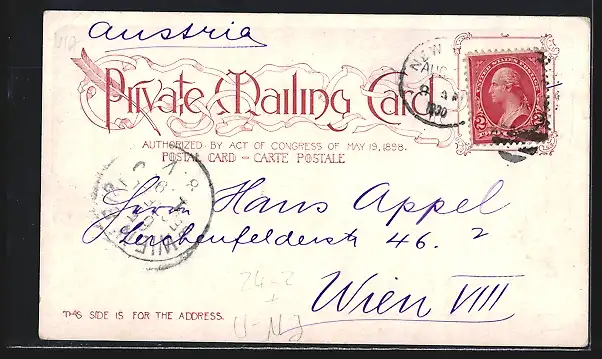 Austria
Private Mailing Card
AUTHORIZED BY ACT OF CONGRESS OF MAY 19, 1898.
POSTAL CARD – CARTE POSTALE
NEW
AUG
1900
2 2
WIEN
Herrn Hans Appel
Lerchenfelderstr 46. 2
Wien VIII
24-2
+
THIS SIDE IS FOR THE ADDRESS.